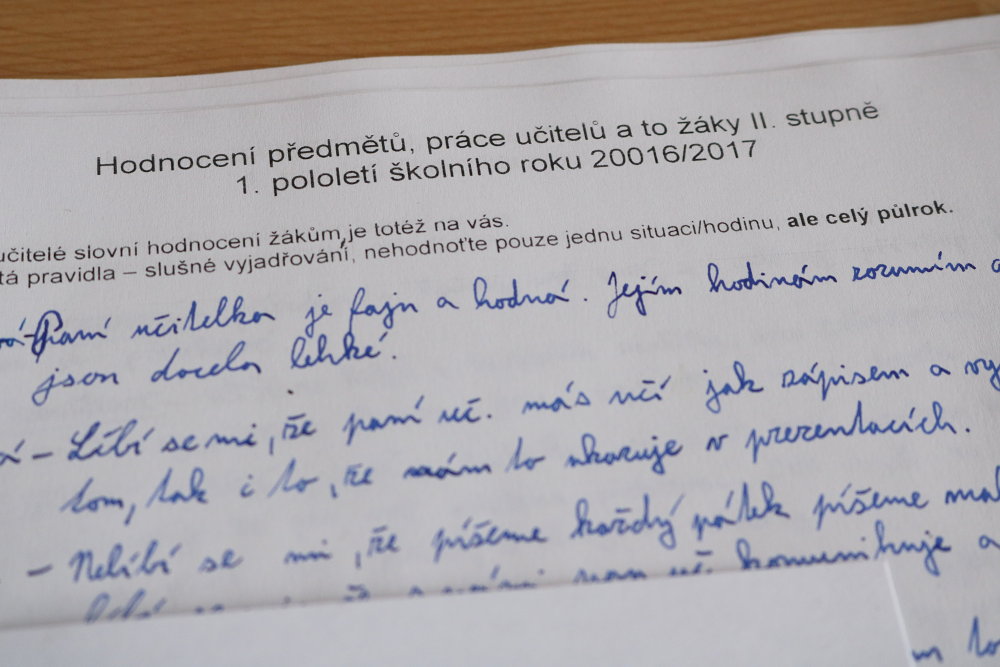 Hodnocení předmětů, práce učitelů a to žáky II. stupně
1. pololetí školního roku 20016/2017
učitelé slovní hodnocení žákům, je totéž na vás.
pravidla – slušné vyjadřování, nehodnoťte pouze jednu situaci/hodinu, ale celý půlrok.
Paní učitelka je fajn a hodná. Jejím hodinám rozumím a
jsou docela lehké.
– Líbí se mi, že paní uč. nás učí jak zápisem a
tom, tak i to, že nám to ukazuje v prezentacích.
– Nelíbí se mi, že píšeme každý pátek píšeme
uč. komunikuje a